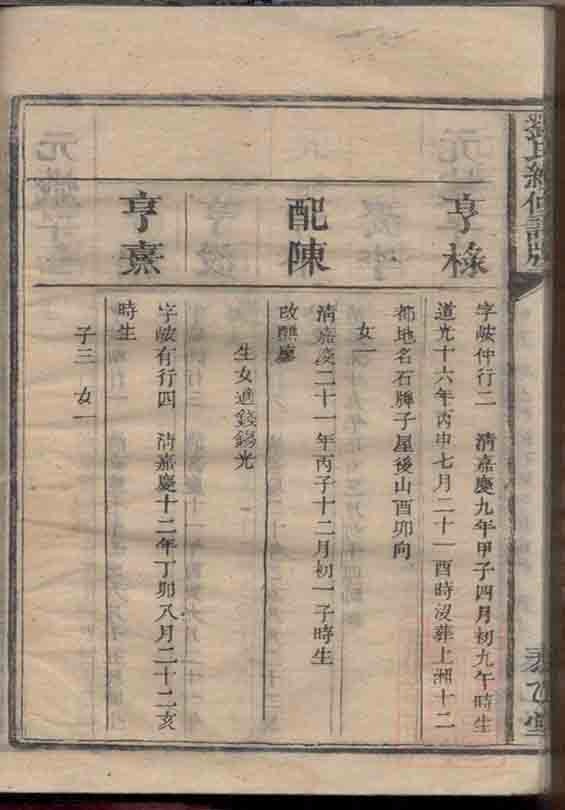 劉氏續修譜牒
亨椽
字峻仲行二 清嘉慶九年甲子四月初九午時生
道光十六年丙申七月二十一酉時沒葬上湘十二
都地名石牌子屋後山酉卯向
女一
配陳
清嘉慶二十一年丙子十二月初一子時生
改醮廖
生女適錢錫光
亨熹
字峻有行四 清嘉慶十二年丁卯八月二十二亥
時生
子三 女一